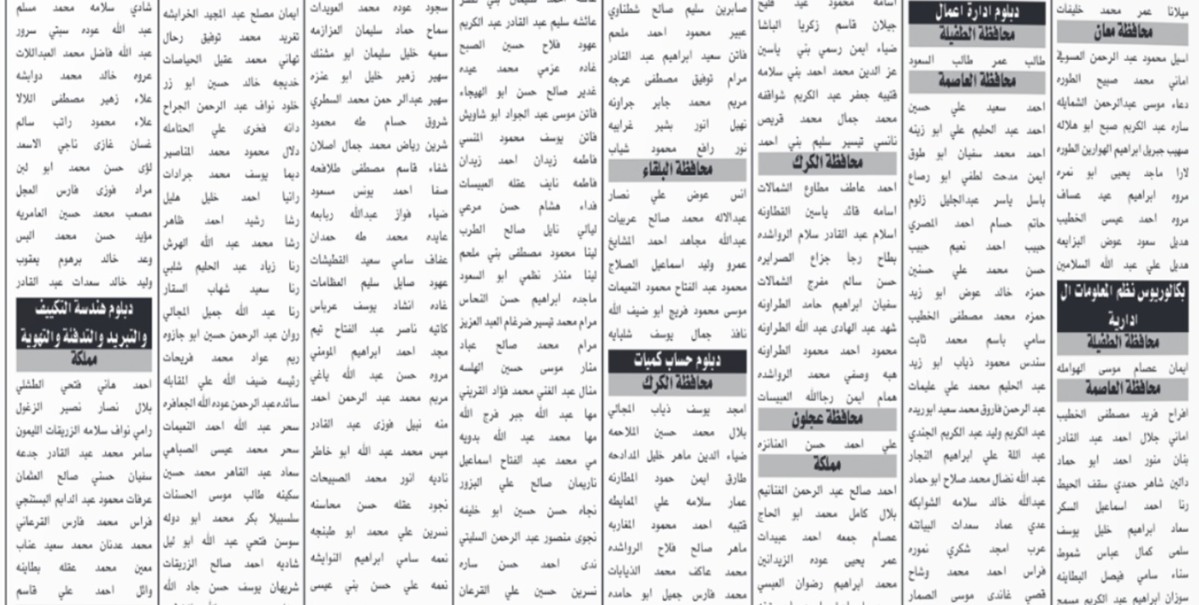 ميلانا عمر محمد خليفات
محافظة معان
اسيل محمود عبد الرحمن السعودي
اماني محمد صبيح الطوره
دعاء موسى عبدالرحمن الشمايله
ساره عبد الكريم صبح ابو هلاله
صهيب جبريل ابراهيم الهوارين الطوره
لارا ماجد يحيى ابو نمره
مروه ابراهيم عيد عساف
مروه احمد عيسى الخطيب
هديل سعود عوض البزايعه
هديل علي عبد الله السلامين
بكالوريوس نظم المعلومات ال
ادارية
محافظة الطفيلة
ايمان عصام موسى الهوامله
محافظة العاصمة
افراح فريد مصطفى الخطيب
اماني جلال احمد عبد القادر
بنان منور احمد ابو حماد
دانين شاهر حمدي سقف الحيط
رنا احمد اسماعيل السكر
سماد ابراهيم خليل يوسف
سلمى كمال عباس شموط
سناء سامي فيصل البطاينه
سوزان ابراهيم عبد الكريم مسمح
دبلوم ادارة اعمال
محافظة الطفيلة
طالب عمر طالب السعود
محافظة العاصمة
احمد سعيد علي حسين
احمد عبد الحليم علي ابو زينه
احمد محمد سفيان ابو طوق
ايمن مدحت لطفي ابو رصاع
باسل ياسر عبدالجليل زلوم
حاتم حسام احمد المصري
حبيب احمد نعيم حبيب
حسن محمد علي حسنين
حمزه خالد عوض ابو زيد
حمزه محمد مصطفى الخطيب
سامي باسم محمد ثابت
سندس محمود ذياب ابو زيد
عبد الحليم محمد علي عليمات
عبد الرحمن فاروق محمد سعيد ابوريده
عبد الكريم وليد عبد الكريم الجندي
عبد اللة علي ابراهيم النجار
عبد الله نضال محمد صلاح ابو حماد
عبدالله خالد سلامه الشوابكه
عدي عماد سعدات البياتنه
عرب امجد شكري نموره
فراس احمد محمد وشاح
قصي غاندي موسى الصمار
اسامه محمود عبد فليح
جيلان قاسم زكريا الباشا
ضياء ايمن رسمي بني ياسين
عز الدين محمد احمد بني سلامه
قتيبه جعفر عبد الكريم شواقفه
محمد جمال محمد قريص
نانسي تيسير سليم بني احمد
محافظة الكرك
احمد عاطف مطاوع الشمالات
اسامه قائد ياسين القطاونه
اسلام عبد القادر سلام الرواشده
بطاح رجا جزاع الصرايره
حسن سالم مفرج الشمالات
سفيان ابراهيم حامد الطراونه
شهد عبد الهادى عبد الله الطراونه
محمود احمد محمود الطراونه
هبه وصفي محمد الرواشده
همام ايمن رجاالله العبيسات
محافظة عجلون
علي احمد حسن العنانزه
مملكة
احمد صالح عبد الرحمن الغنانيم
بلال كامل محمد ابو الحاج
عصام جمعه احمد عبيدات
عمر يحيى عوده الزيدانين
محمد ابراهيم رضوان العيسي
صابرين سليم صالح شطناوي
عبير محمود احمد ملحم
فاتن سعيد ابراهيم عبد القادر
مرام توفيق مصطفى عرجه
مريم محمد جابر جراونه
نهيل انور بشير غرايبه
نور رافع محمود شياب
محافظة البلقاء
انس عوض علي نصار
عبدالاله محمد صالح عربيات
عبدالله مجاهد احمد المشايخ
عمرو وليد اسماعيل الصلاج
محمود عبد الفتاح محمود النعيمات
موسى محمود فريج ابو ضيف الله
نافذ جمال يوسف شلبايه
دبلوم حساب كميات
محافظة الكرك
امجد يوسف ذياب المجالي
بلال محمد حسين الملاحمه
ضياء الدين ماهر خليل المدادحه
طارق ايمن حمود المطارنه
عمار سلامه علي المعايطه
قتيبه احمد محمود المغاربه
ماهر صالح فلاح الرواشده
محمد عاكف محمد الذيابات
محمد فارس جميل ابو حامده
عائشه سليم عبد القادر عبد الكريم
عهود فلاح حسين الصبح
غاده عزمي محمد عبده
غدير صالح حسن ابو الهيجاء
فاتن موسى عبد الجواد ابو شاويش
فاتن يوسف محمود المنسي
فاطمه زيدان احمد زيدان
فاطمه نايف عقله العبيسات
فداء هشام حسن مرعي
ليالي نايل صالح الطرب
لينا محمود مصطفى بني ملحم
لينا منذر نظمي ابو السعود
ماجده ابراهيم حسن النحاس
مرام محمد تيسير ضرغام العبد العزيز
مرام محمد صالح عباد
منار موسى حسين الهلسه
منال عبد الغني محمد فؤاد القريني
مها عبد الله جبر فرج الله
مها محمد عبد الله بدويه
مي محمد عبد الفتاح اسماعيل
ناريمان صالح علي البزور
نجاه حسن حسين ابو خليفه
نجوى منصور عبد الرحمن السليتي
ندى احمد حسن ساره
نسرين حسين علي القرعان
سجود عوده محمد العويدات
سماح حماد سليمان العزازمه
سميه خليل سليمان ابو مشنك
سهير زهير خليل ابو عنزه
سهير عبدالر حمن محمد السطري
شروق حسام طه محمود
شرين رياض محمد جمال اصلان
شفاء قاسم مصطفى طلافحه
صفا احمد يونس مسعود
ضياء فواز عبدالله ربابعه
عايده محمد طه حمدان
عفاف سامي سعيد القطيشات
عهود صايل سليم العظامات
غاده انشاد يوسف عرباس
كاتيه ناصر عبد الفتاح تيم
مجد احمد ابراهيم المومني
مروه حسن عبد الله ياغي
مريم محمد عبد الرحمن احمد
منه نبيل فوزى عبد القادر
ميس محمد عبد الله ابو خاطر
ناديه انور محمد الصبيحات
نجود عقله حسن محاسنه
نسرين علي محمد ابو طبنجه
نعمه سامي ابراهيم النوايشه
نعمه علي حسن بني عيسى
ايمان مصلح عبد المجيد الخرابشه
تغريد محمد توفيق رحال
تهاني محمد عقيل الحياصات
خديجه خالد حسين ابو زر
خلود نواف عبد الرحمن الجراح
دانه فخرى علي الحتامله
دلال محمود محمد المناصير
ديما يوسف محمد جرادات
رانيا احمد خليل هليل
رشا رشيد احمد ظاهر
رشا محمد عبد الله الهرش
رنا زياد عبد الحليم شلبي
رنا سعيد شهاب السقار
رنا عبد الله جميل المجالي
روان عبد الرحمن حسين ابو جازوه
ريم عواد محمد فريحات
رئيسه ضيف الله علي المقابله
سائده عبد الرحمن عوده الله الجعافره
سحر عبد الله احمد النعيمات
سحر محمد عيسى الصباهي
سعاد عبد القاهر محمد حسين
سكينه طالب موسى الحسنات
سلسبيلا بكر محمد ابو دوله
سوسن فتحي عبد الله ابو ليل
شاديه احمد صالح الزريقات
شريهان يوسف حسن جاد الله
شادي سلامه محمد مسلم
عبد الله عوده سبتي سرور
عبد الله فاضل محمد العبداللات
عروه خالد محمد دوابشه
علاء زهير مصطفى اللالا
علاء محمود راتب سالم
غسان غازى ناجي الاسعد
لؤى حسن محمد ابو لبن
مراد فوزى فارس العجل
مصعب محمد حسين العامريه
مؤيد حسن محمد البس
وعد خالد برهوم يعقوب
وليد خالد سعدات عبد القادر
دبلوم هندسة التكييف
والتبريد والتدفئة والتهوية
مملكة
احمد هاني فتحي الطشلي
بلال نصار نصير الزغول
رامي نواف سلامه الزريقات الليمون
سامر محمد عبد القادر جدعه
سفيان حسني صالح العثمان
عرفات محمود عبد الدايم البستنجي
فراس محمد فارس القرعاني
محمد عدنان محمد سعيد عناب
معين محمد عقله بطاينه
وائل احمد علي قاسم